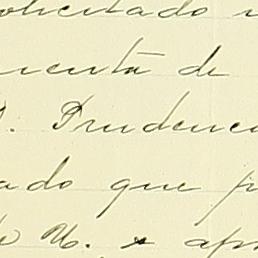 olicitado
cuenta de
D. Prudenc
ado que p
U. apr